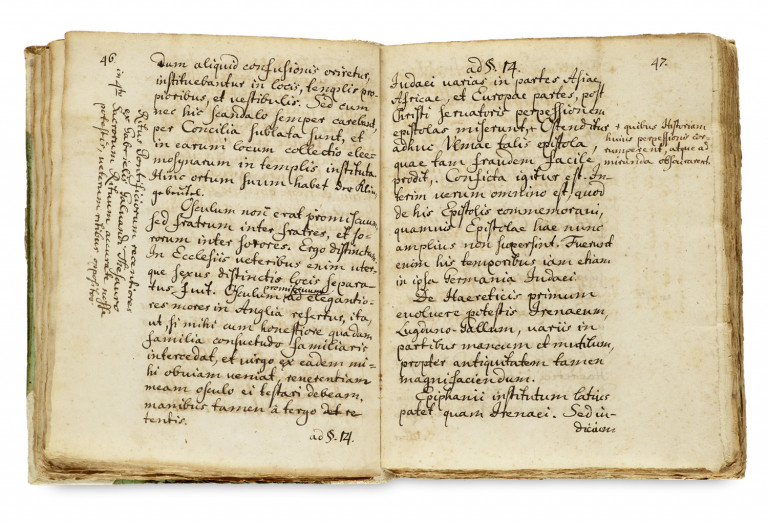 46.
Dum aliquid confusionis oriretur,
instituebantur in locis, templis pro-
pioribus, et vestibulis. Sed cum
nec hic scandalo semper carebant,
per Concilia sublata sunt, et
in earum locum collectio elee
mosynarum in templis instituta.
Hinc ortum suum habet der Klin-
gebeütel.
Osculum non erat promiscuum,
sed fratrum inter fratres, et so-
rorum inter sorores. Ergo distincte,
In Ecclesiis veteribus enim uter-
que sexus distinctis locis separa-
tus fuit. Osculum promiscuum ad elegantio-
res mores in Anglia refertur, ita,
ut, si mihi cum honestiore quadam
familia consuetudo familiaris
intercedat, et virgo ex eadem mi-
hi obviam veniat, reverentiam
meam osculo ei testari debeam,
manibus tamen à tergo re
tentis.
ad §. 14.
Ritus Pontificiorum recentiores
ex Gabrielis Galvandi Thesauro
Sacrorum Rituum accurate nosse
potestis, veterum ritibus oppositos
in 4to
47.
ad §. 14.
Iudaei varias in partes Asiae,
Africae, et Europae partes, post
Christi servatoris perpessionem
epistolas miserunt, + Ostenditur
adhuc Ulmae talis epistola,
quae tam fraudem facile
prodit, Conficta igitur est. In-
terim verum omnino est, quod
de his Epistolis commemoravi,
quamvis Epistolae hae nunc
amplius non supersint. Fuerunt
enim his temporibus iam etiam
in ipsa Germania Iudaei.
De Haereticis primum
evolvere potestis Irenaeum,
Lugduno-Gallum, variis in
partibus mancum et mutilum,
propter antiquitatem tamen
magni faciendum.
Epiphanii institutum latius
patet quam Irenaei. Sed iu-
dicium
+ quibus Historiam
huius perpessionis cor-
rumperent, atque ad
miranda obscurarent.